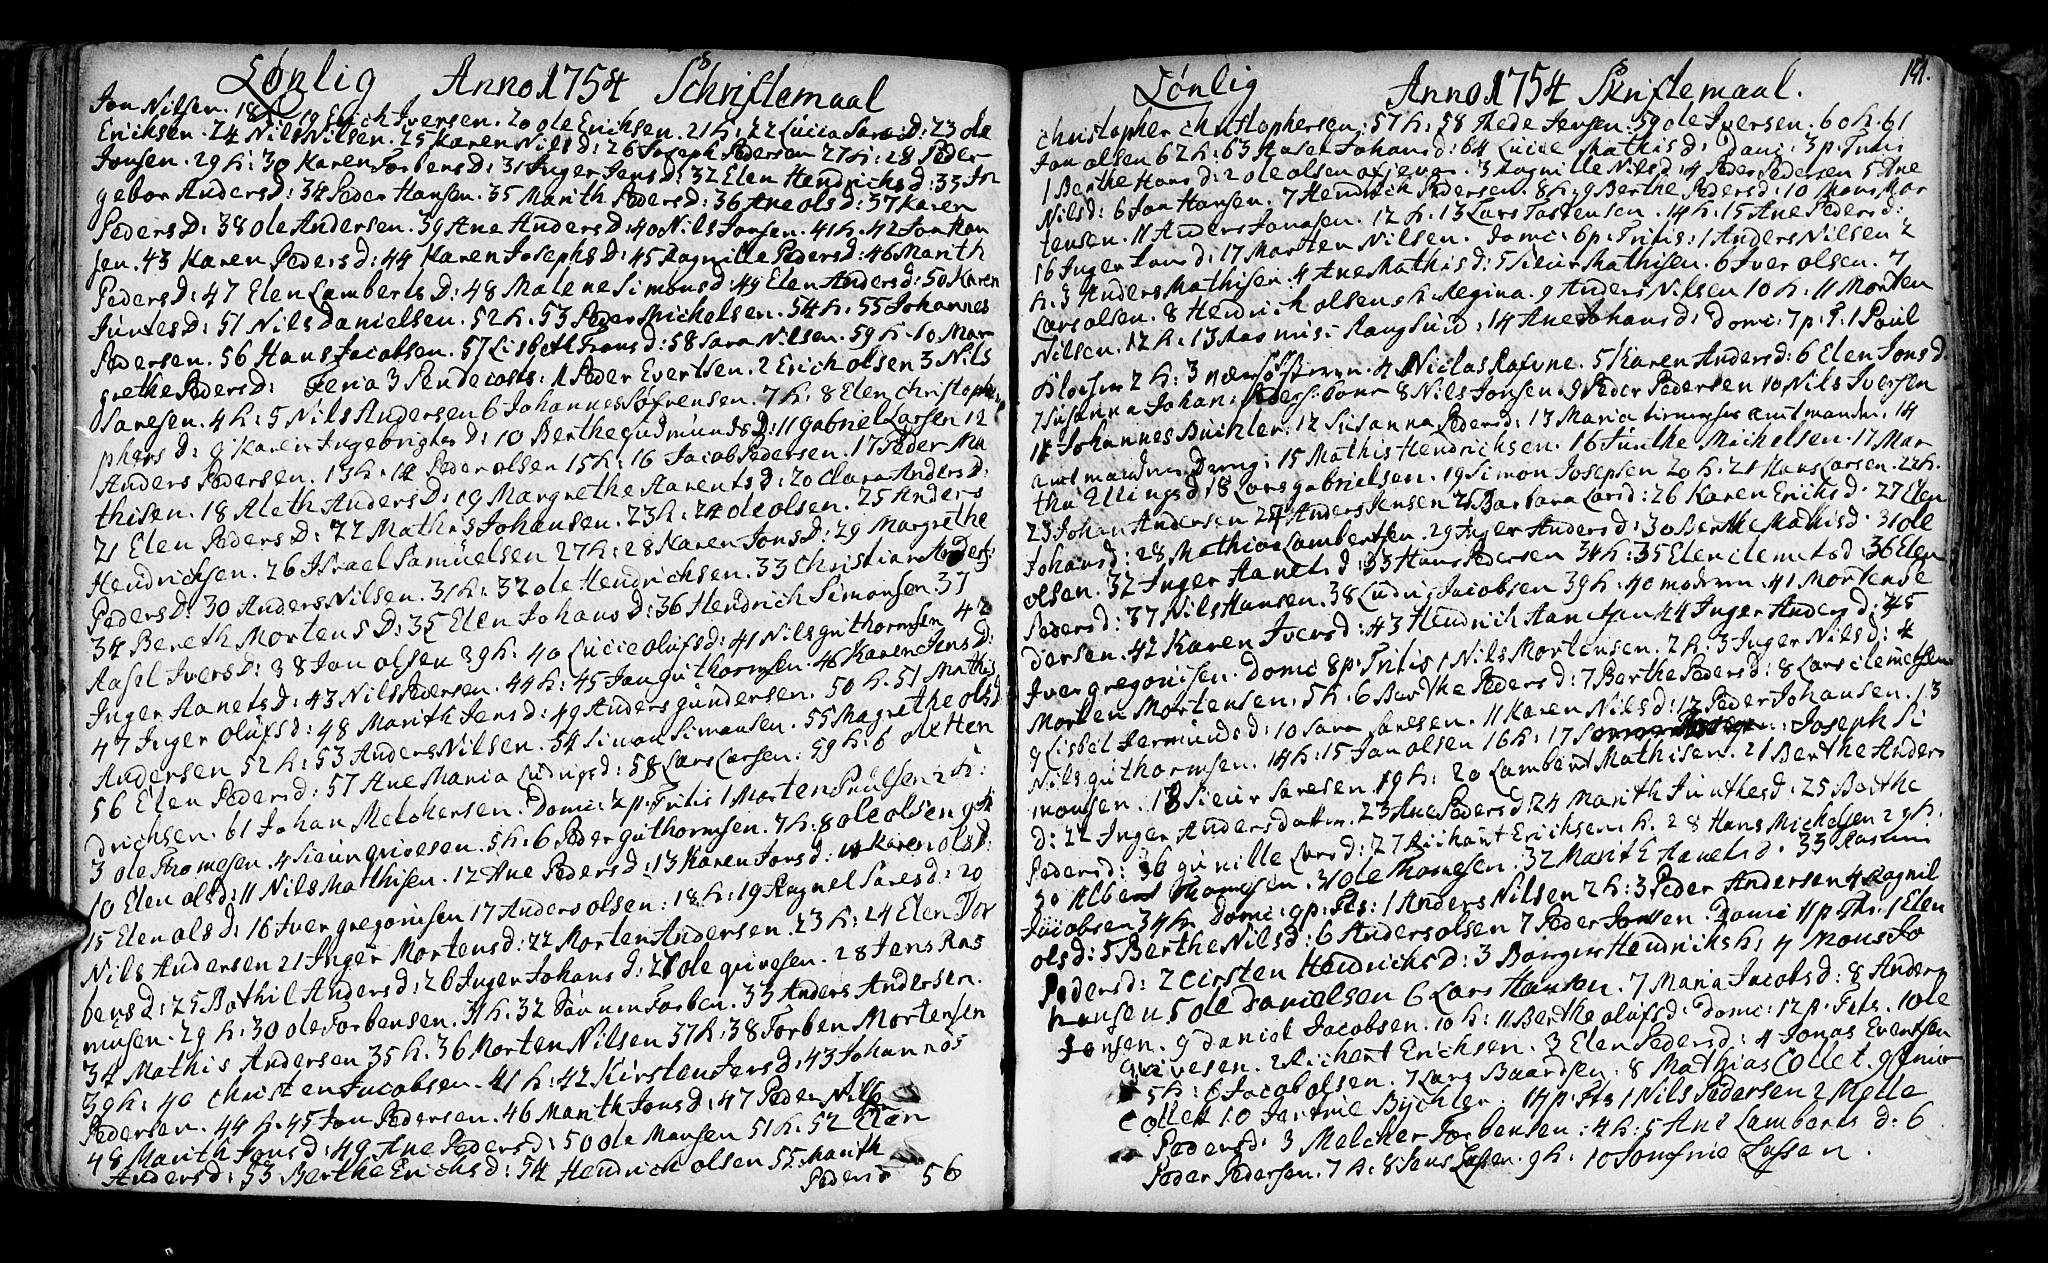 Lønlig Anno 1754 Schriftemaal
Jon Nilsen. 18 h: 19 Erich Iversen. 20 ole Erichsen. 21 h: 22 Lucia Sares D: 23 ole
Erichsen. 24 Nils Nilsen. 25 Karen Nils d: 26 Joseph Pedersen 27 h: 28 Peder
Jonsen. 29 h: 30 Karen Torbens D: 31 Inger Jens d: 32 Elen Hendrichs d: 33 In
gebor Anders D: 34 Peder Hansen. 35 Marith Peders D: 36 Ane ols d: 37 Karen
Peders D: 38 ole Andersen. 39 Ane Anders D: 40 Nils Jonsen. 41 h. 42 Jon Han
sen. 43 Karen Peders d: 44 Karen Josephs D: 45 Ragnille Peders d: 46 Marith
Peders D: 47 Elen Lamberts D: 48 Malene Simons d: 49 Elen Anders d: 50 Karen
Juntes D: 51 Nils Danielsen. 52 h. 53 Peder Michelsen. 54 h. 55 Johannes
Pedersen. 56 Hans Jacobsen. 57 Lisbeth Frans d: 58 Sara Nilsen. 59 h. 10 Mar
grethe Peders d: Feria 3 Pendecosts: 1 Peder Evertsen. 2 Erich olsen 3 Nils
Saresen. 4 h: 5 Nils Andersen 6 Johannes Søfrensen. 7 h: 8 Elen Christoph
phers d: 9 Karen Ingebrigts d: 10 Berthe gudmunds D: 11 gabriel Larsen 12
Anders Pedersen. 13 h: 14 Peder olsen 15 h: 16 Jacob Pedersen. 17 Peder Ma
thisen. 18 Aleth Anders D: 19 Margrethe Aarents d: 20 Clara Anders D:
21 Elen Peders D: 22 Mathis Johansen. 23 h: 24 ole olsen. 25 Anders
Hendrichsen. 26 Israel Samuelsen 27 h: 28 Karen Jons D: 29 Margrethe
Peders D: 30 Anders Nilsen. 31 h: 32 ole Hendrichsen. 33 Christian Anders:
34 Bereth Mortens D: 35 Elen Johans D: 36 Hendrich Simonsen. 37
Aasel Ivers D: 38 Jon olsen 39 h: 40 Lucie olufs d: 41 Nils guthormsen 42
Inger Aanets D: 43 Nils Pedersen. 44 h: 45 Jan guthormsen. 46 Karen Jens D:
47 Inger olufs d: 48 Marith Jens d: 49 Anders gundersen. 50 h. 51 Mathis
Andersen 52 h: 53 Anders Nilsen. 54 Simon Simonsen. 55 Magrethe ols d
56 Elen Peders d: 57 Ane Maria Ludvigs d: 58 Lars Larsen: 59 h: 6 ole Hen
drichsen. 61 Johan Melchersen. Domi: 2 p: Tritis 1 Morten Poulsen 2 h:
3 ole Thomesen. 4 Sieur grivesen. 5 h: 6 Peder guthormsen. 7 h. 8 ole olsen 9 h
10 Elen ols d: 11 Nils Mathisen. 12 Ane Peders d: 13 Karen Jons d: 14 Karen ols d:
15 Elen ols d: 16 Iver gregorisen 17 Anders olsen: 18 h: 19 Ragnel Sares d: 20
Nils Andersen 21 Inger Mortens d: 22 Morten Andersen. 23 h: 24 Elen Tor
bens D: 25 Bothil Anders d: 26 Inger Johans d: 27 ole grivesen. 28 Jens Ras
musen. 29 h: 30 ole Torbensen. 31 h. 32 Torben. 33 Anders Andersen.
34 Mathis Andersen 35 h. 36 Morten Nilsen 37 h: 38 Torben Mortensen
39 h: 40 Christen Jacobsen. 41 h: 42 Kirsten Jens d: 43 Johannes
Pedersen. 44 h. 45 Jon Pedersen. 46 Marith Jons D: 47 Peder Nils
48 Marith Jons d: 49 Ane Peders d: 50 ole Monsen 51 h. 52 Elen
Anders d: 53 Berthe Erichs d: 54 Hendrich olsen 55 Marith
Peders d 56
Lønlig Anno 1754 Skriftemaal. 191.
Christopher Christophersen: 57 h: 58 Thede Jensen. 59 ole Iversen. 60 h. 61
Jan olsen 62 h: 63 Aasel Johans d: 64 Lucie Mathis d: Domi: 3 p: Tritis
1 Berthe Hans d: 2 ole olsen 3 Ragnille Nils d: 4 Peder Pedersen 5 Ane
Nils d: 6 Jon Hansen. 7 Hendrich Pedersen. 8 h. 9 Berthe Peders d: 10 Mons Mor
tensen. 11 Anders Jonasen. 12 h. 13 Lars Tostensen. 14 h. 15 Ane Peders d:
16 Inger Jons d: 17 Morten Nilsen. Domi: 6 p: Tritis: 1 Anders Nilsen 2
h. 3 Anders Mathisen. 4 Ane Mathis d: 5 Sieur Mathisen. 6 Iver olsen. 7
Lars olsen. 8 Hendrich olsens h. Regina. 9 Anders Nilsen 10 h: 11 Morten
Nilsen. 12 h. 13 Rasmus 14 Ane Johans d: Domi: 7 p: T: 1 Poul
2 h: 3 4 Niclas 5 Karen Anders d: 6 Elen Jons d
7 Susanna Johan 8 Nils Jonsen. 9 Peder Pedersen 10 Nils Iversen
11 Johannes Buchler. 12 Susanna Peders d: 13 Maria 14
15 Mathis Hendrichsen. 16 Junthe Michelsen. 17 Mar
tha Ellings d: 18 Lars gabrielsen. 19 Simon Josepsen 20 h. 21 Hans Larsen. 22 h.
23 Johan Andersen 24 Anders Jensen 25 Barbara Lars d: 26 Karen Eriks d: 27 Elen
Johans d: 28 Mathias Lambertsen. 29 Inger Anders d: 30 Berthe Mathis d: 31 ole
olsen. 32 Inger Aanets d: 33 Hans Pedersen 34 h: 35 Elen Clemets d: 36 Elen
Peders d: 37 Nils Hansen. 38 Ludvig Jacobsen 39 h: 40 41 Morten Pe
dersen. 42 Karen Ivers d: 43 Hendrich Aanetsen 44 Inger Anders d: 45
Iver gregorisen. Domi: 8 p: Tritis 1 Nils Mortensen. 2 h: 3 Inger Nils d: 4
Morten Mortensen. 5 h. 6 Berthe Peders d: 7 Berthe Peders d: 8 Lars Clemetsen
9 Lisbet Jermunds d: 10 Sara Saresen. 11 Karen Nils d: 12 Peder Johansen. 13
Nils guthormsen. 14 h: 15 Jan olsen 16 h: 17 Joseph Si
monsen. 18 Sieur Saresen. 19 h: 20 Lambert Mathisen. 21 Berthe Anders
D: 22 Inger Anders 23 Ane Peders d: 24 Marith Junthes d: 25 Berthe
Peders d: 26 gunille Lars d: 27 Richart Erichsen. h. 28 Hans Michelsen 29 h.
30 Albert Thomesen. 31 ole Thomesen. 32 Marit Aanets d: 33 Rasmus
Jacobsen 34 h. Domi: 9 p: Tts: 1 Anders Nilsen 2 h: 3 Peder Andersen 4 Ragnil
ols d: 5 Berthe Nils d: 6 Anders olsen 7 Peder Jonsen. Domi 11 p: Tts: 1 Elen
Peders d: 2 Cirsten Hendrichs D: 3 Borger Hendrichs h: 4 Mons Jo
hansen 5 ole Danielsen 6 Lars Hansen. 7 Maria Jacobs d: 8 Anders
Jensen. 9 Daniel Jacobsen. 10 h: 11 Berthe olufs d: Domi: 12 p: Tts. 1 ole
grivesen. 2 Richert Erichsen. 3 Elen Peders d: 4 Jonas Evertsen
5 h: 6 Jacob olsen. 7 Lars Baardsen. 8 Mathias Collet. 9
Collett 10 Bÿchler. 14 p: Tts 1 Nils Pedersen 2 Mette
Peders d: 3 Melcher Torbensen: 4 h: 5 Ane Lamberts d: 6
Peder Pedersen. 7 h: 8 Jens Lassen. 9 h: 10 Lassen.